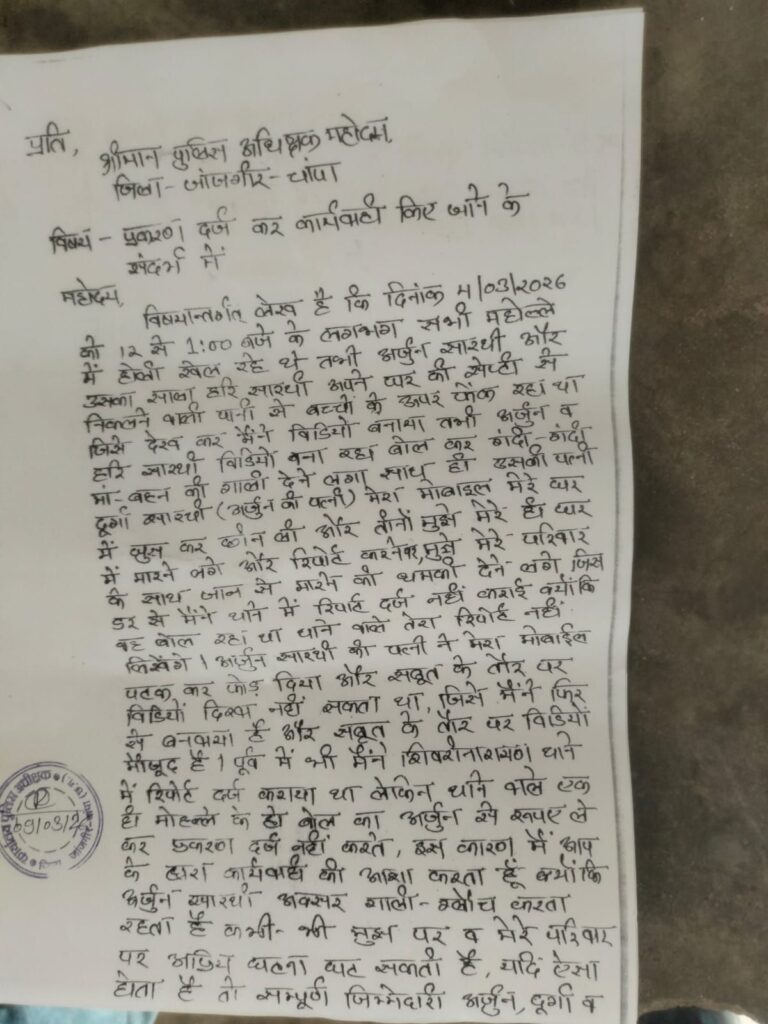 प्रति,
श्रीमान पुलिस अधिक्षक महोदय,
जिला - जांजगीर-चांपा
विषय - प्रकरण दर्ज कर कार्यवाही किए जाने के
संदर्भ में
महोदय,
विषयान्तर्गत लेख है कि दिनांक 4/03/2026
को 12 से 1:00 बजे के लगभग सभी महोल्ले
में होली खेल रहे थे तभी अर्जुन सारथी और
उसका साला हरि सारथी अपने घर की सेप्टी से
निकलने वाली पानी से बच्चों के ऊपर फेंक रहा था
जिसे देख कर मैंने विडियो बनाया तभी अर्जुन व
हरि सारथी विडियो बना रहा बोल कर गंदी-गंदी
मां-बहन की गाली देने लगा साथ ही उसकी पत्नी
दूर्गा सारथी (अर्जुन की पत्नी) मेरा मोबाइल मेरे घर
में घुस कर छीन ली और तीनों मुझे मेरे ही घर
में मारने लगे और रिपोर्ट करनेपर, मुझे मेरे परिवार
के साथ जान से मारने की धमकी देने लगे जिस
डर से मैंने थाने में रिपोर्ट दर्ज नहीं कराई क्योंकि
वह बोल रहा था थाने वाले तेरा रिपोर्ट नहीं
लिखेंगे। अर्जुन सारथी की पत्नी ने मेरा मोबाईल
पटक कर फोड़ दिया और सबूत के तौर पर
विडियों दिखा नहीं सकता था, जिसे मैंने फिर
से बनवाया है और सबूत के तौर पर विडियों
मौजूद है। पूर्व में भी मैंने शिवरीनारायण थाने
में रिपोर्ट दर्ज कराया था लेकिन थाने वाले एक
ही मोहल्ले के हो बोल का अर्जुन से रूपए ले
कर प्रकरण दर्ज नहीं करते, इस कारण मैं आप
के द्वारा कार्यवाही की आशा करता हूँ क्योंकि
अर्जुन सारथी अक्सर गाली-गलौच करता
रहता है कभी-भी मुझ पर व मेरे परिवार
पर अप्रिय घटना घट सकती है, यदि ऐसा
होता है तो सम्पूर्ण जिम्मेदारी अर्जुन, दूर्गा व
कार्यालय पुलिस अधीक्षक
09/03/2